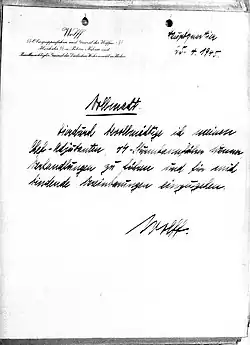 Wolff
SS-Obergruppenführer und General der Waffen-SS
Höchster SS- u. Polizei-Führer und
Bevollmächtigter General der Deutschen Wehrmacht in Italien
Hauptquartier
25.4.1945.
Vollmacht.
Hierdurch bevollmächtige ich meinen
Chef-Adjutanten, SS-Sturmbannführer Wenner
Verhandlungen zu führen und für mich
bindende Vereinbarungen einzugehen.
Wolff.